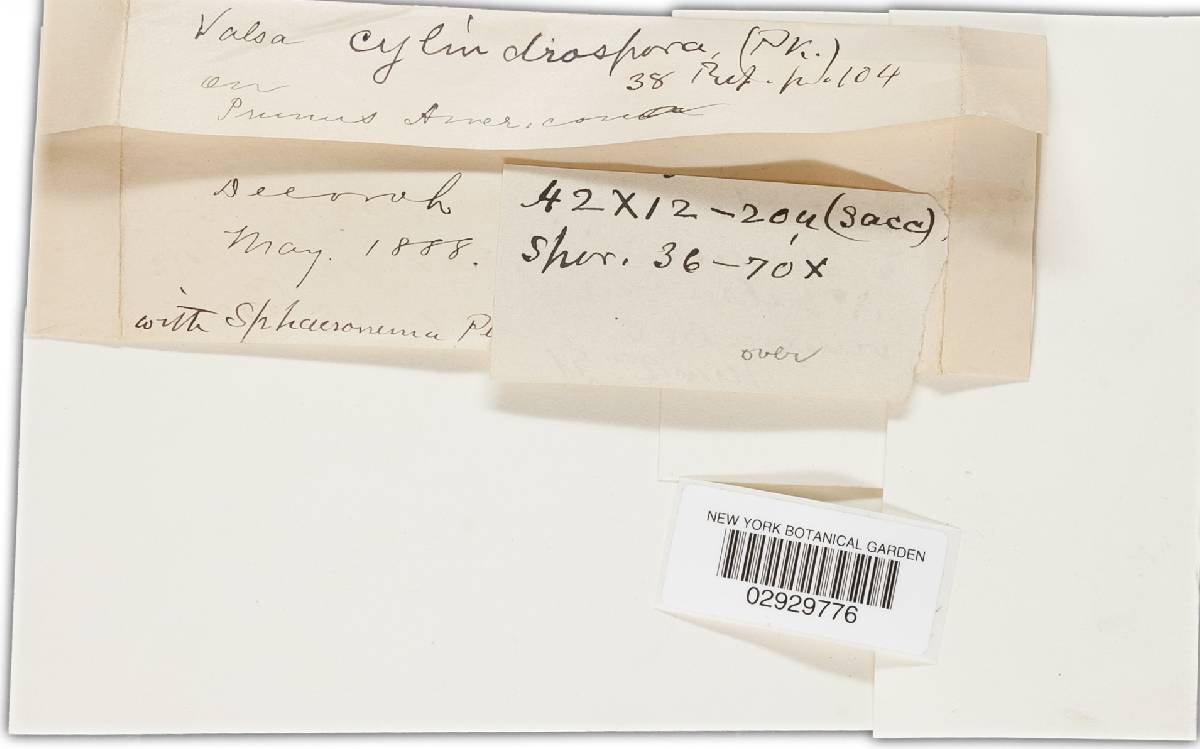 Valsa cylindrospora, (Pk.)
38 Rep. p. 104
on
Prunus Americana
Decorah
May. 1888.
with Sphaeronema
42X12-20µ (Sacc)
Spor. 36-70X
over
NEW YORK BOTANICAL GARDEN
02929776